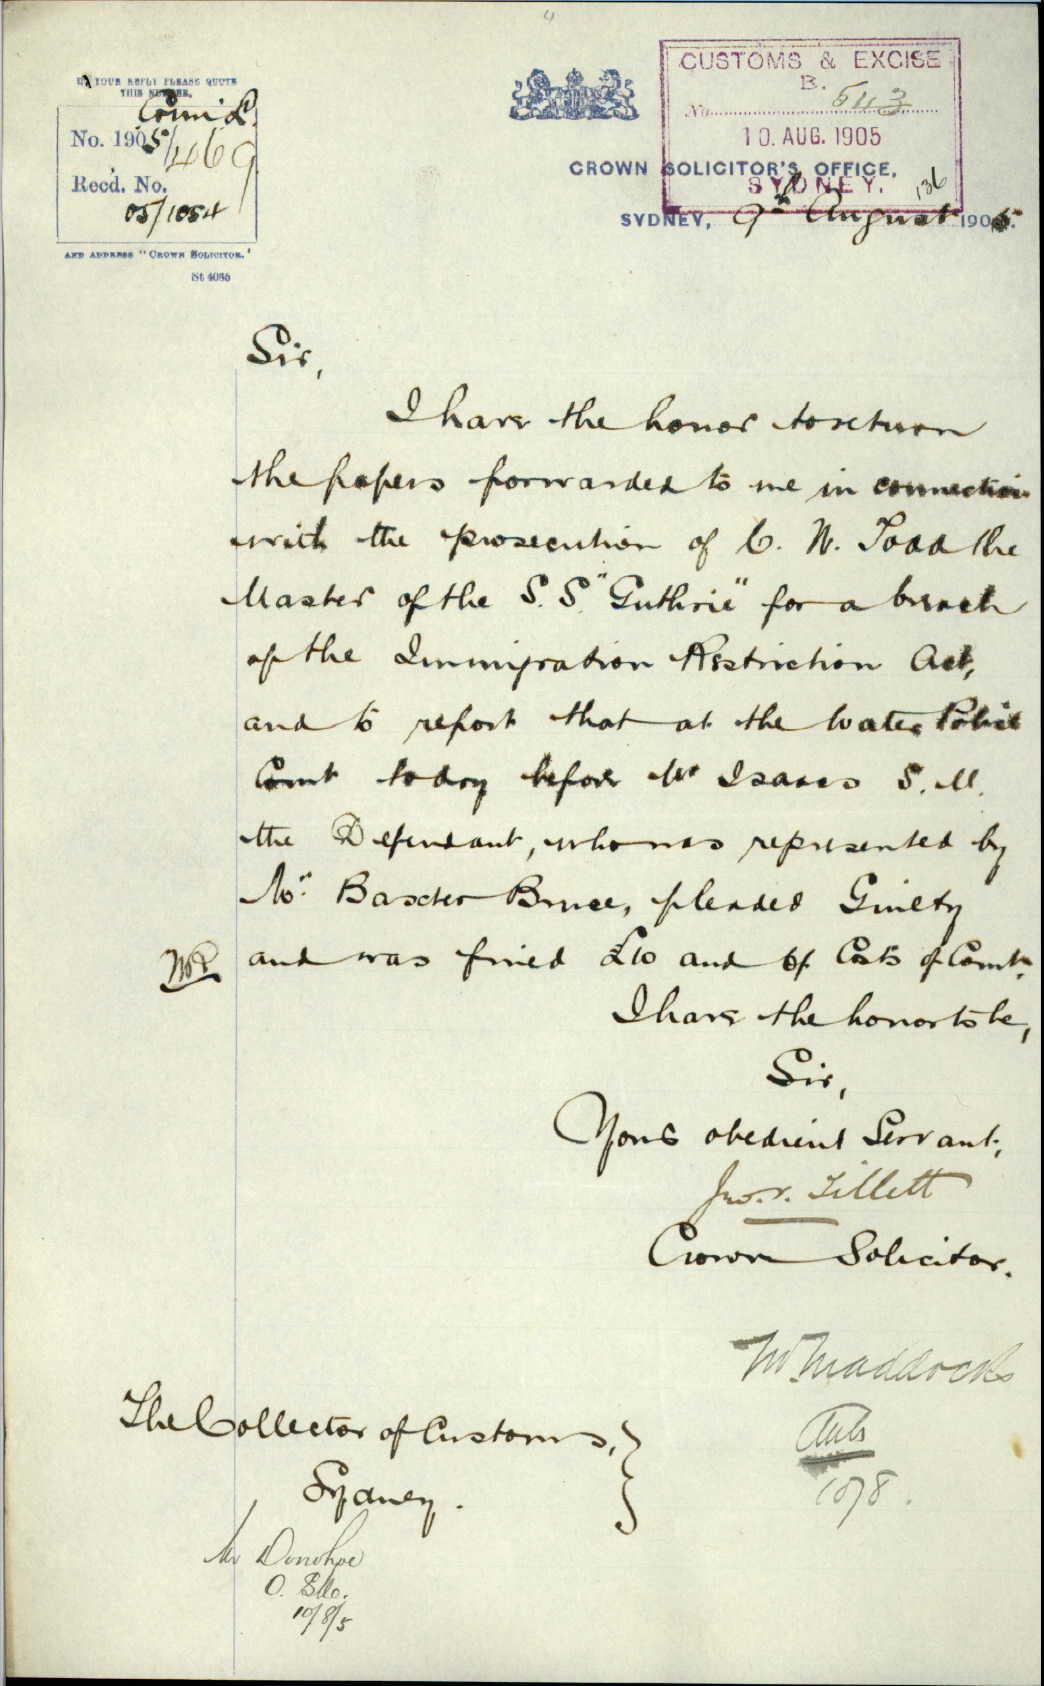 IN YOUR REPLY PLEASE QUOTE
THIS NUMBER,
No. 1905/469
Recd. No.
05/1054
AND ADDRESS "CROWN SOLICITOR."
St 4035
CUSTOMS & EXCISE
B.
No. 5113
10. AUG. 1905
SYDNEY.
136
CROWN SOLICITOR'S OFFICE,
SYDNEY, 9th August 1905.
Sir,
I have the honor to return
the papers forwarded to me in connection
with the prosecution of C. W. Todd the
Master of the S.S. "Guthrie" for a breach
of the Immigration Restriction Act,
and to report that at the Water Police
Court today before Mr Isaacs S.M.
the Defendant, who was represented by
Mr. Baxter Bruce, pleaded Guilty
and was fined £10 and 6/ Costs of Court.
I have the honor to be,
Sir,
Your obedient Servant,
Jno. V. Tillett
Crown Solicitor.
Mr Maddocks
10/8.
The Collector of Customs,
Sydney.
Mr Donohoe
10/8/5